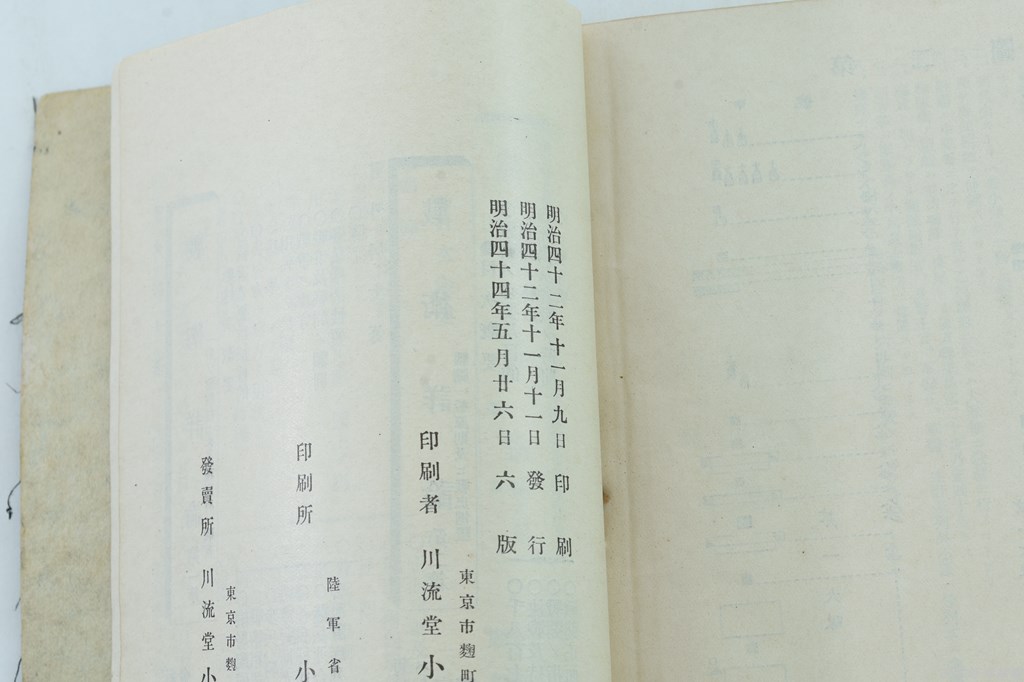 明治四十二年十一月九日印刷
明治四十二年十一月十一日發行
明治四十四年五月廿六日六版
東京市麴町
印刷者 川流堂 小
陸軍省
印刷所 小
東京市麴
發賣所 川流堂 小